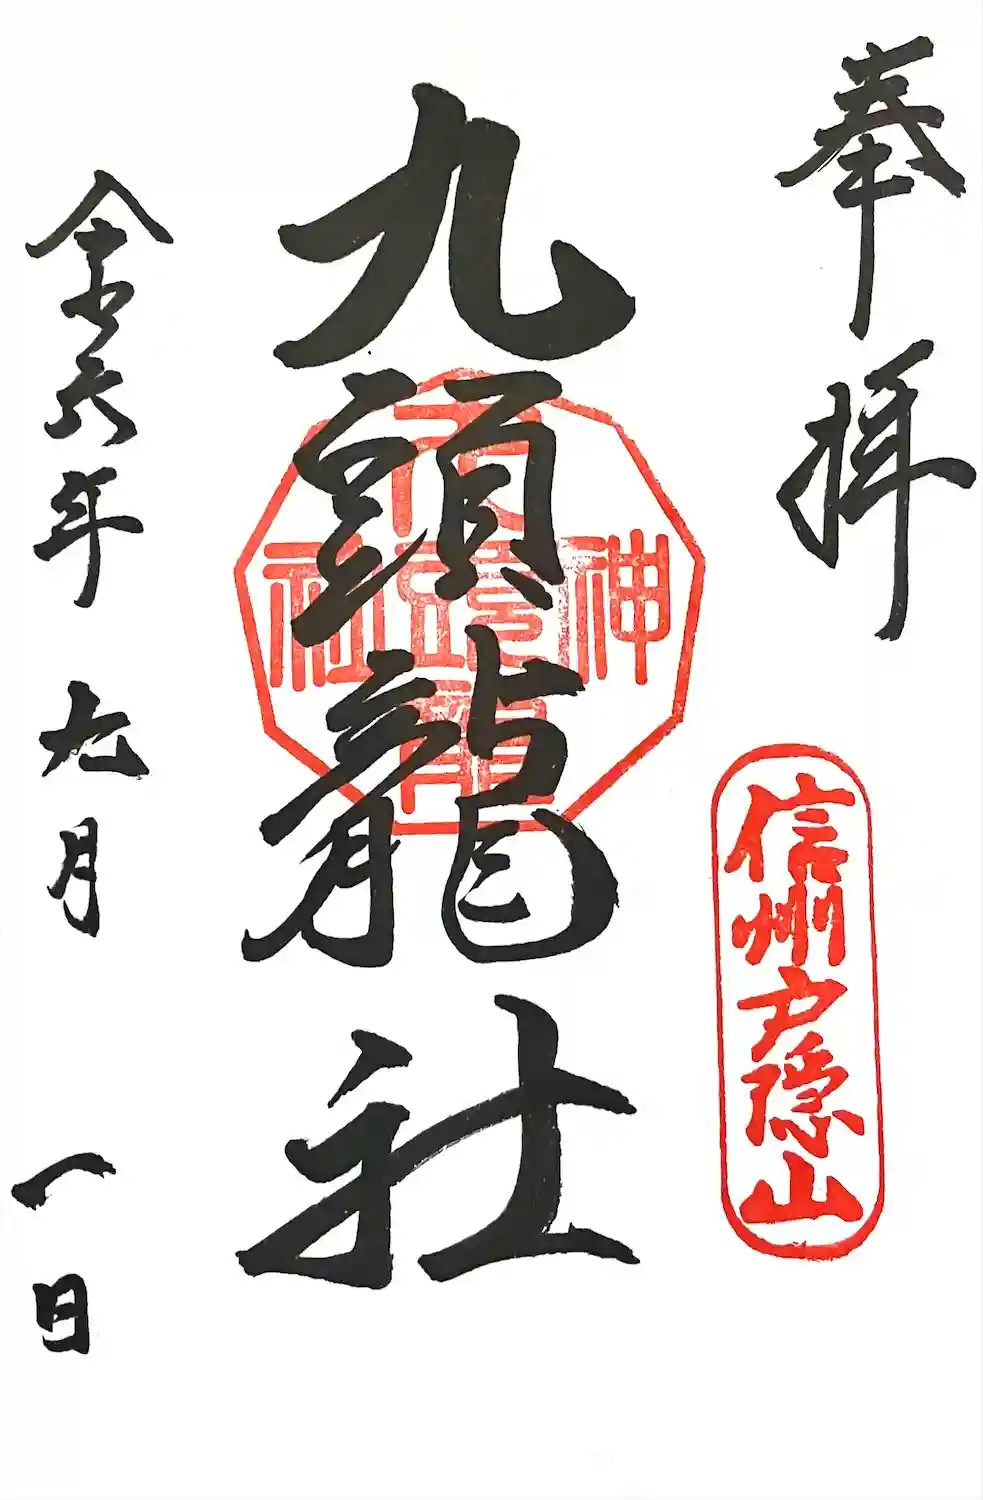 奉拝
信州戸隠山
九頭龍社
九頭龍神社
令和六年九月一日